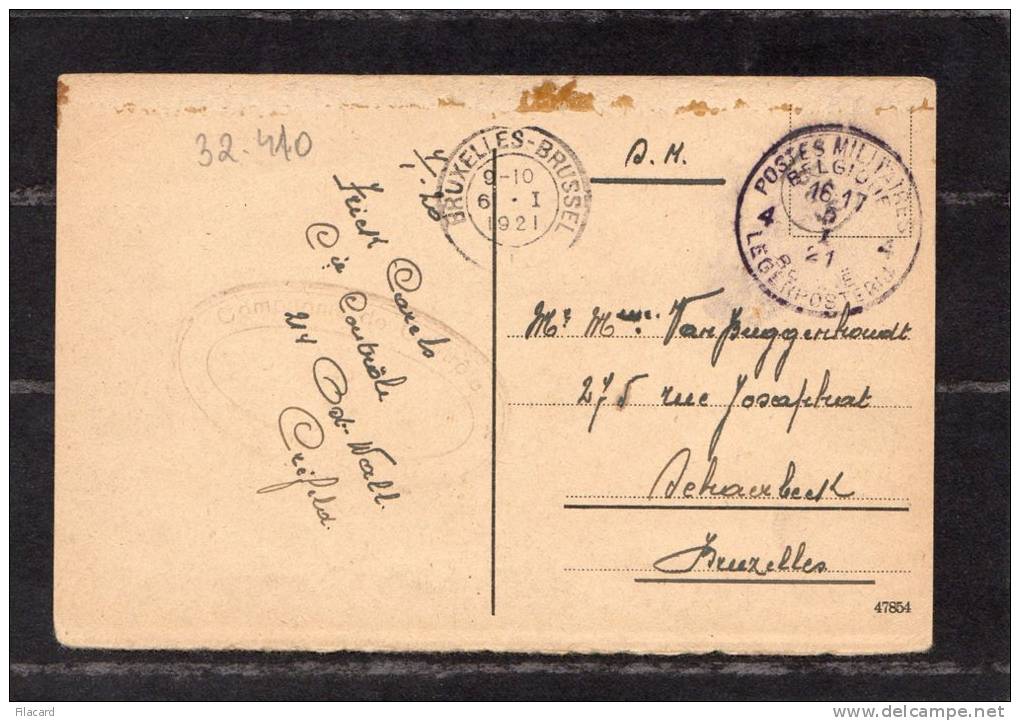 32-410
BRUXELLES-BRUSSEL
9-10
6 · I
1921
S. M.
POSTES MILITAIRES
BELGIQUE
16-17
5
I
21
4 4
LEGERPOSTERIJ
Carels
Cie Contrôle
214 Ost Wall
Crefeld.
Mr Mme Van Buggenhoudt
275 rue Josaphat
Schaerbeek
Bruxelles
47854
Filacard
http://www.delcampe.net